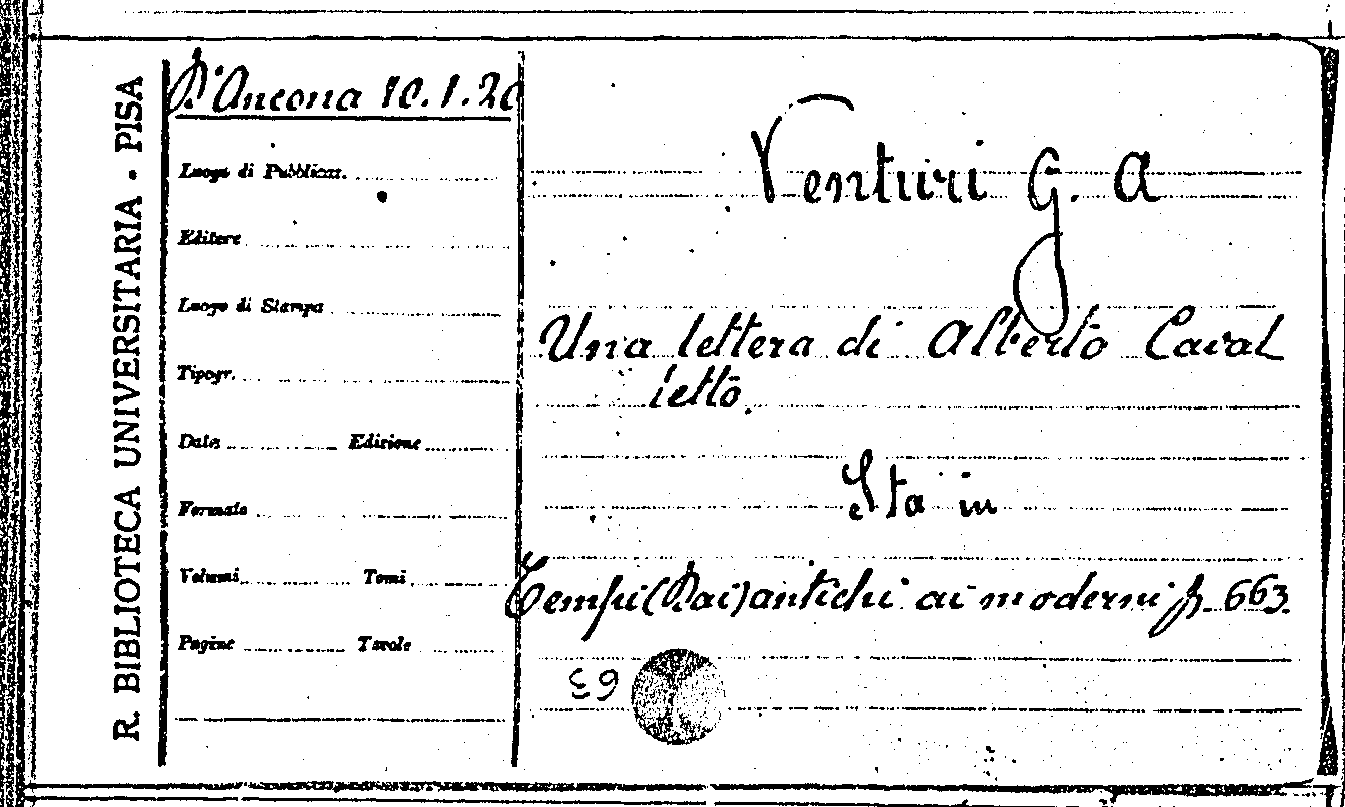 R. BIBLIOTECA UNIVERSITARIA . PISA
D'Ancona 10.1.20
Luogo di Pubblicaz.
Editore
Luogo di Stampa
Tipogr.
Data Edizione
Formato
Volumi Tomi
Pagine Tavole
Venturi G. A
Una lettera di Alberto Caval
letto.
Sta in
Tempi (Dai) antichi ai moderni p. 663.